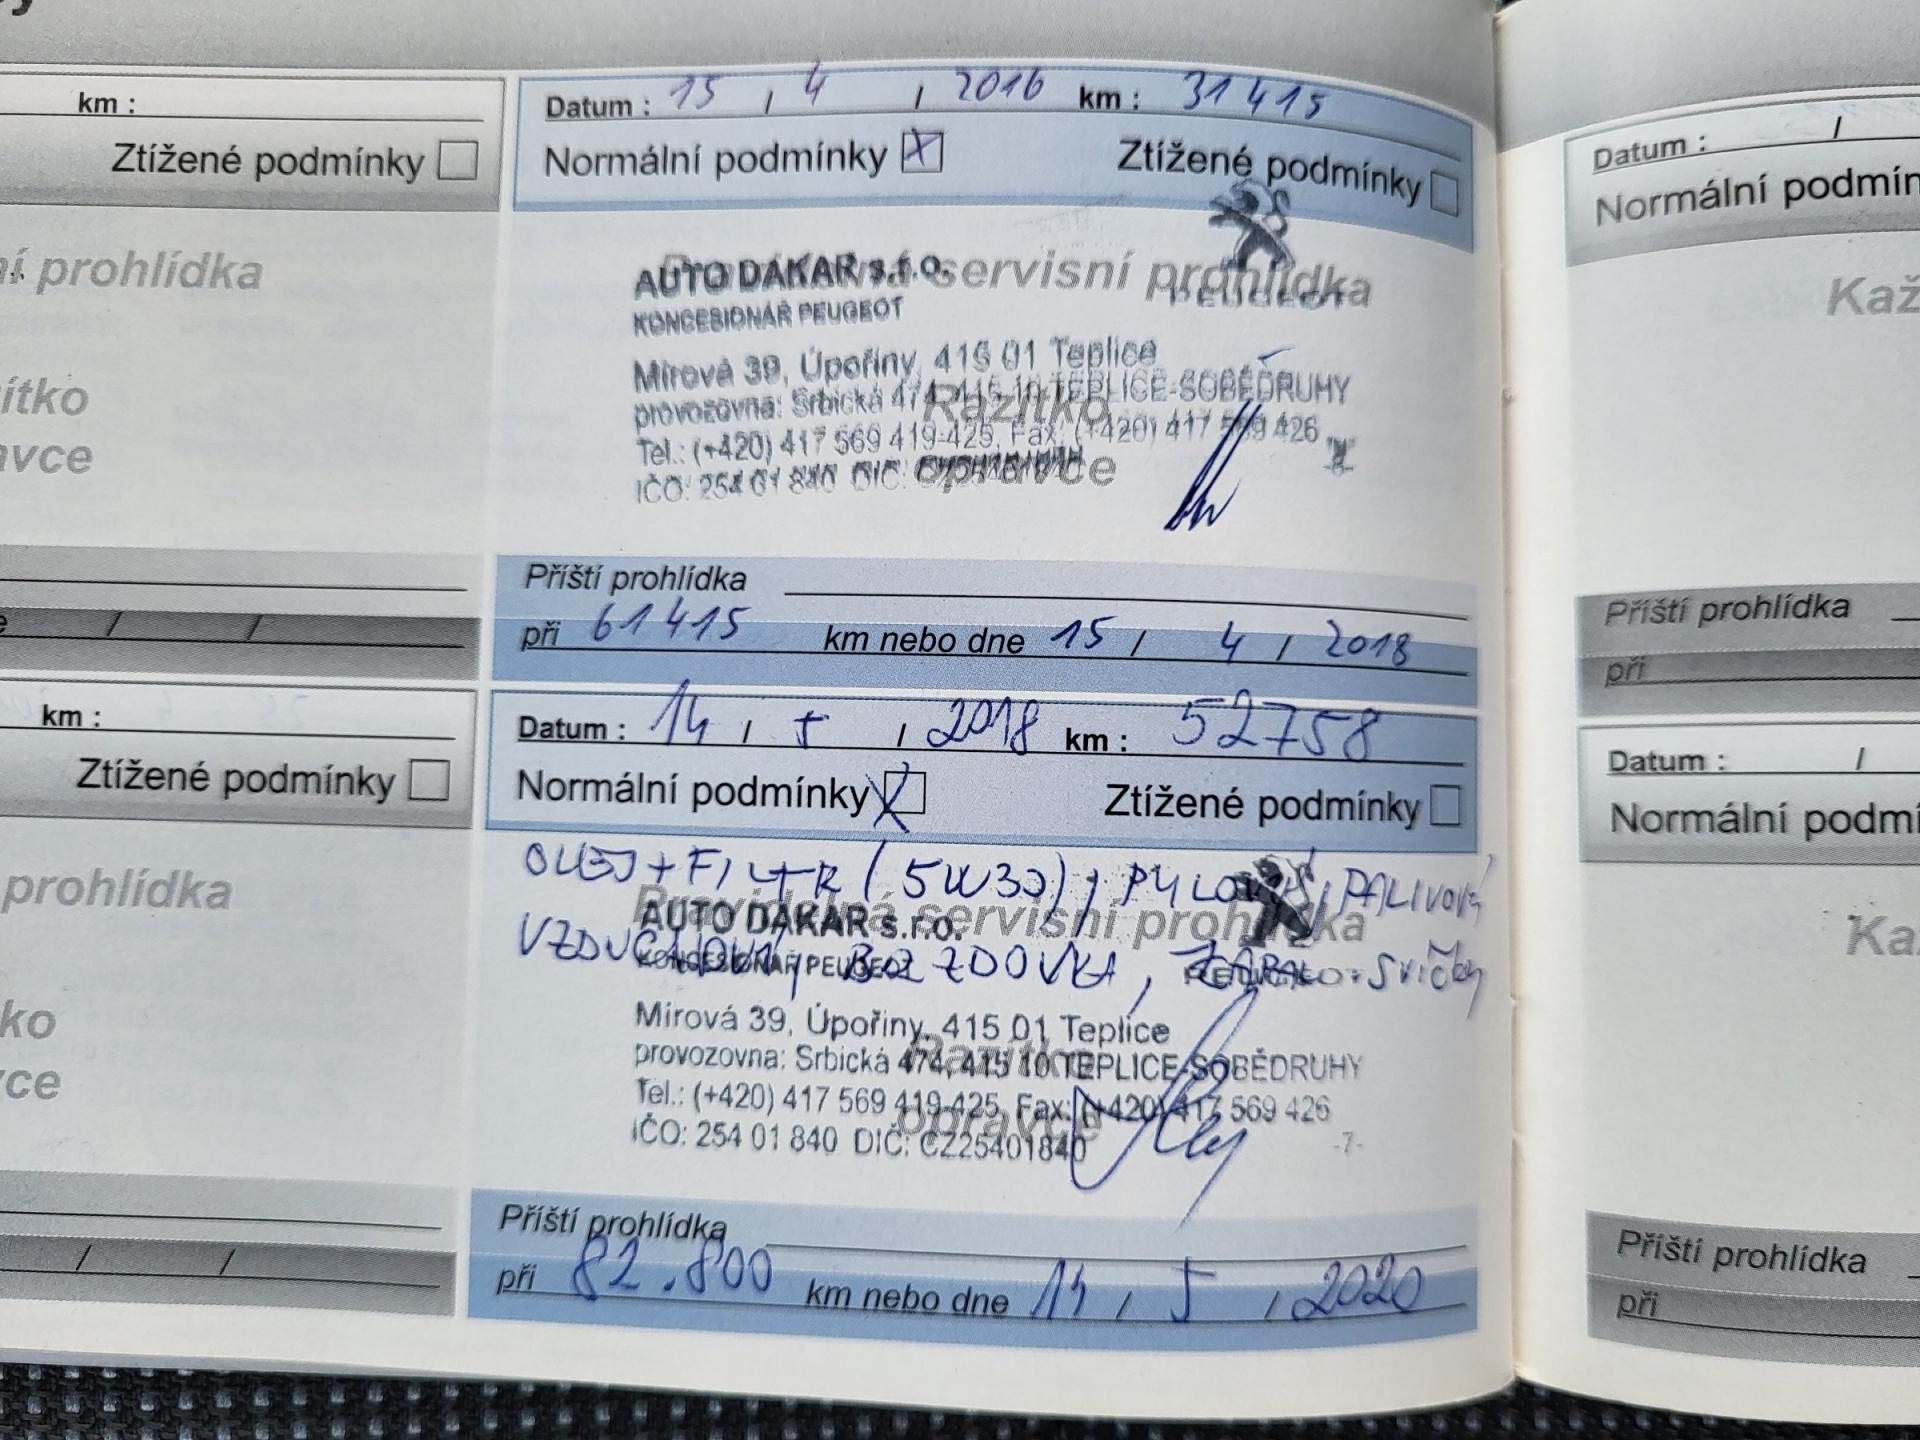 km :
Ztížené podmínky
ní prohlídka
ítko
avce
km :
Ztížené podmínky
prohlídka
ko
ce
Datum : 15 / 4 / 2016 km : 31 415
Normální podmínky X Ztížené podmínky
Pravidelná servisní prohlídka
AUTO DAKAR s.r.o.
KONCESIONÁŘ PEUGEOT
PEUGEOT
Mírová 39, Úpořiny, 415 01 Teplice
provozovna: Srbická 474, 415 10 TEPLICE-SOBĚDRUHY
Razítko
Tel.: (+420) 417 569 419-425, Fax: (+420) 417 569 426
opravce
IČO: 254 01 840 DIČ:
Příští prohlídka
při 61 415 km nebo dne 15 / 4 / 2018
Datum : 14 / 5 / 2018 km : 52758
Normální podmínky X Ztížené podmínky
OLEJ + FILTR (5W30), PYLOVÝ, PALIVOVÝ
Pravidelná servisní prohlídka
AUTO DAKAR s.r.o.
VZDUCHOVÝ, BRZDOVKA, ZAPAL. SVÍČKY
KONCESIONÁŘ PEUGEOT
PEUGEOT
Mírová 39, Úpořiny, 415 01 Teplice
Razítko
provozovna: Srbická 474, 415 10 TEPLICE-SOBĚDRUHY
Tel.: (+420) 417 569 419-425, Fax: (+420) 417 569 426
opravce
IČO: 254 01 840 DIČ: CZ25401840 -7-
Příští prohlídka
při 82.800 km nebo dne 14 / 5 / 2020
Datum : /
Normální podmín
Kaž
Příští prohlídka
při
Datum : /
Normální podmí
Ka
Příští prohlídka
při